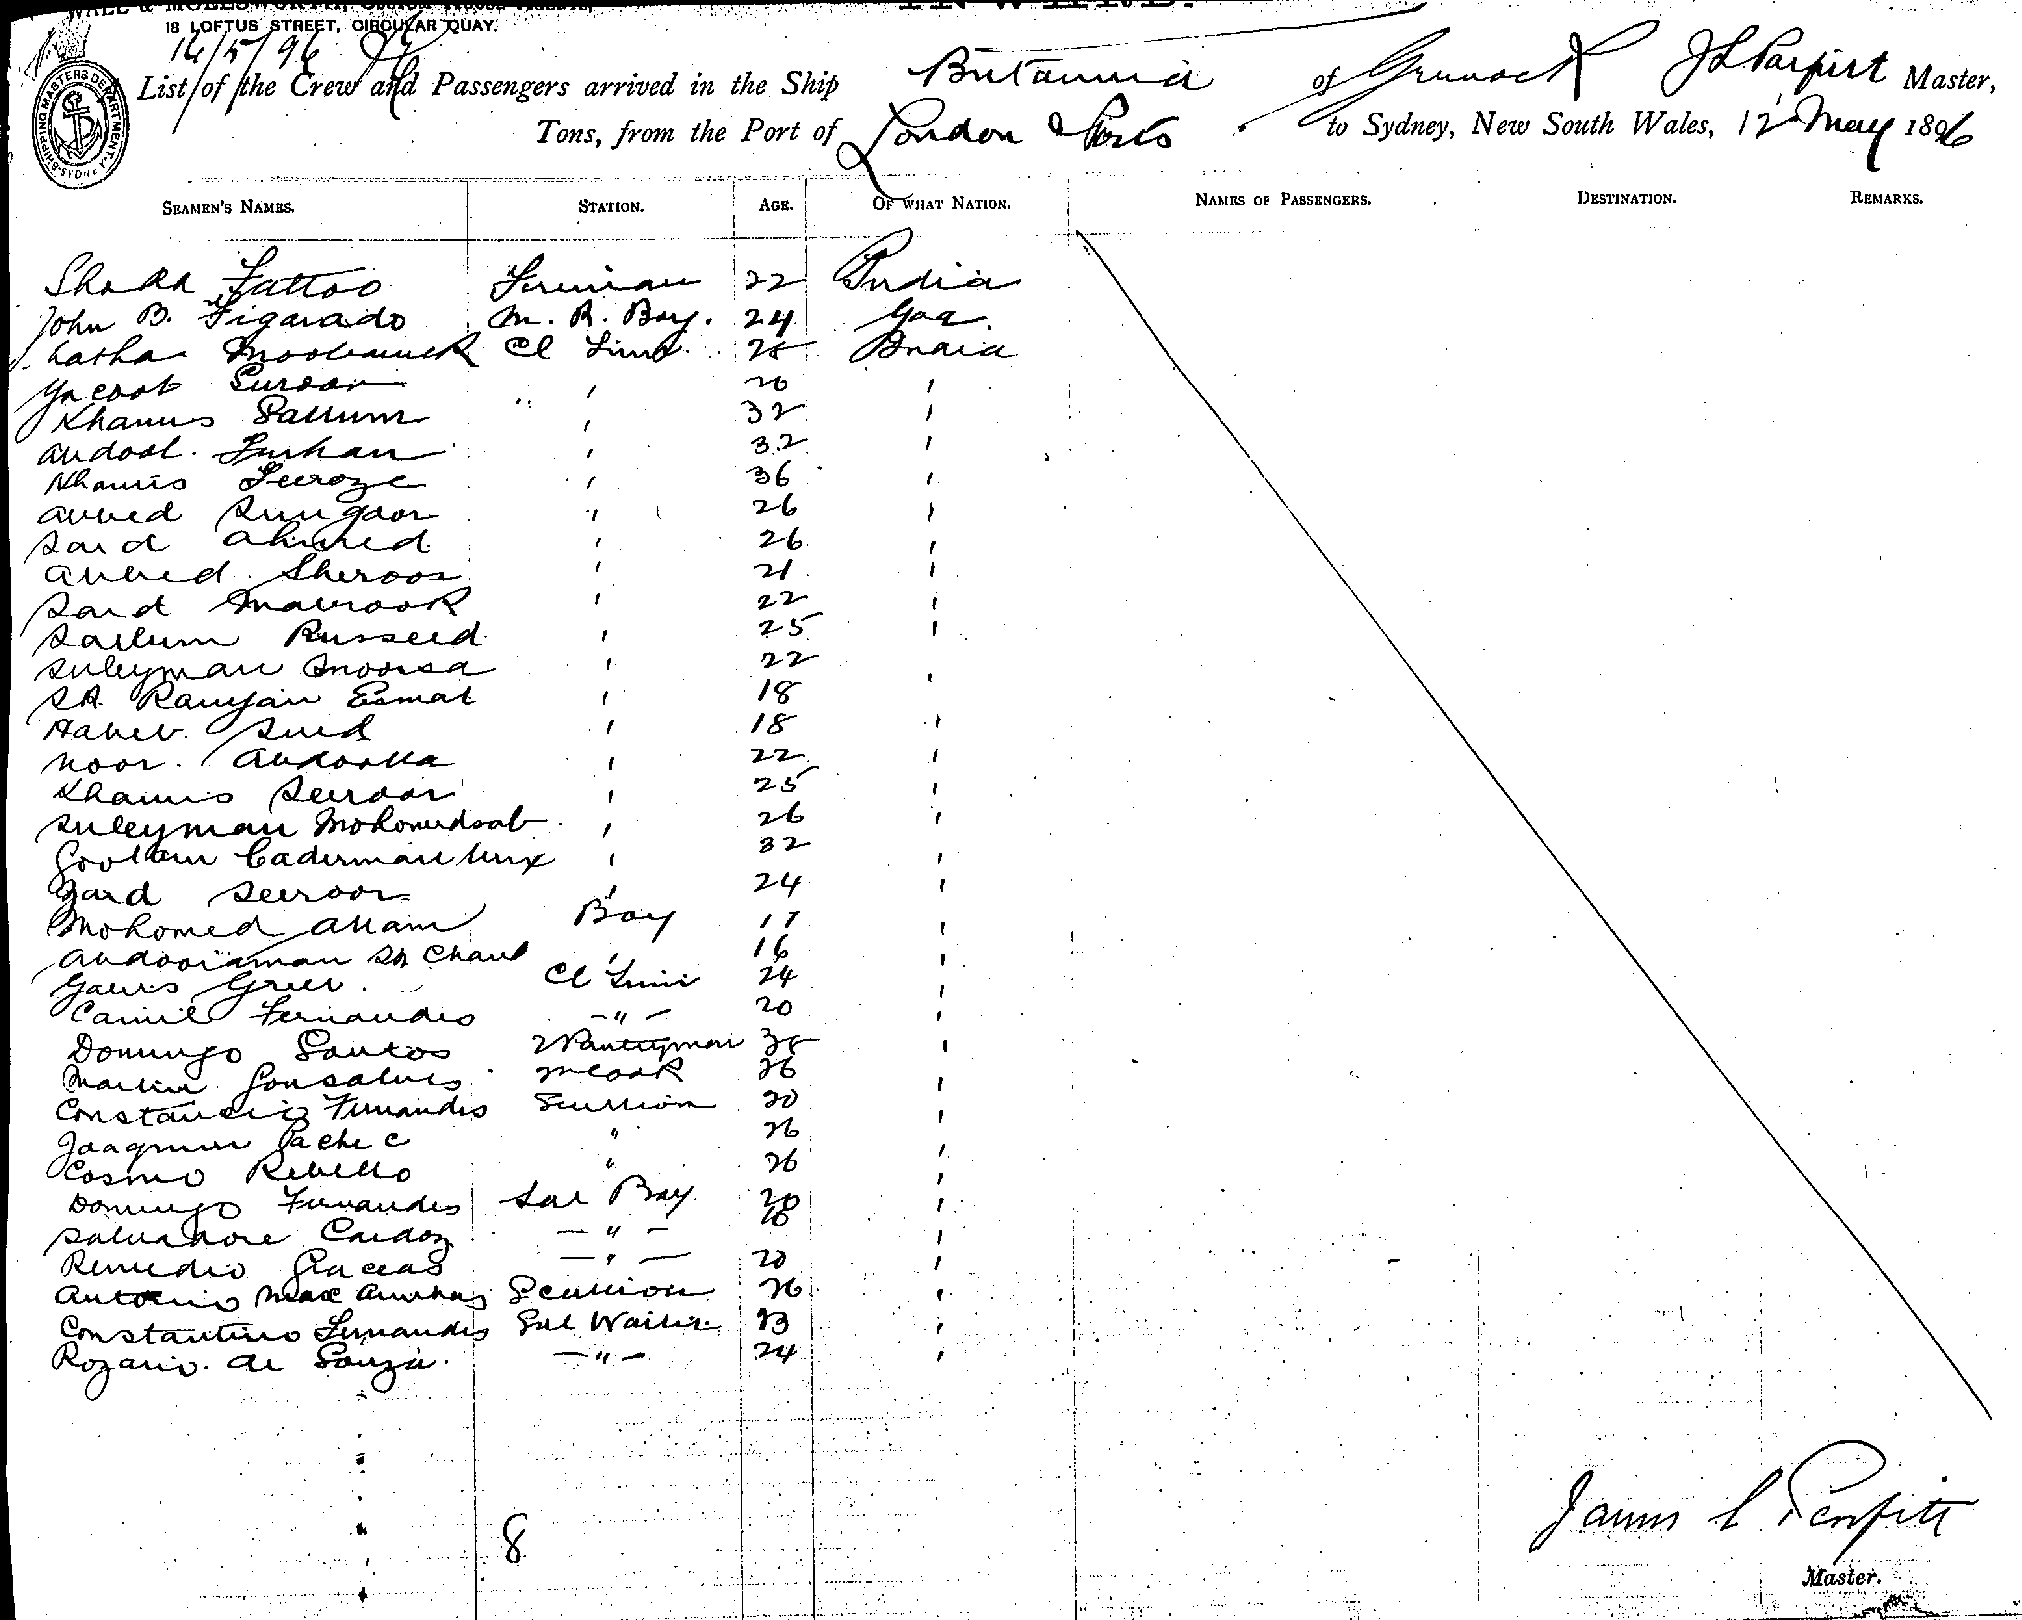 18 LOFTUS STREET, CIRCULAR QUAY.
14/5/96
SHIPPING MASTERS DEPARTMENT SYDNEY
List of the Crew and Passengers arrived in the Ship Britannia of Greenock J L Parfitt Master,
Tons, from the Port of London & Ports to Sydney, New South Wales, 12 May 1896
SEAMEN'S NAMES. STATION. AGE. OF WHAT NATION. NAMES OF PASSENGERS. DESTINATION. REMARKS.
Fattoo Fireman 22 India
John B. Figarado M. R. Boy. 24 Goa
Moobarruck Cl Fire. India
Yacoot Suroor " ' 26 '
Khamis Sallum ' 32 '
Abdool Furhan ' 32 '
Khamis Feeroze ' 36 '
Abbed Sungoor ' 26 '
Said Ahmed ' 26 '
Abbed Sheroos ' 21 '
Said Mabrook ' 22 '
Sallum Russeed ' 25 '
Suleyman Moosa ' 22 '
Sk. Ramjan Esmal ' 18 '
Habeb Sud ' 18 '
Noor Abdoolla ' 22 '
Khamis Seeroor ' 25 '
Suleyman Mohomedsab ' 26 '
Goolam Cadermanbux ' 32 '
Zaid Seeroor ' 24 '
Mohomed Allam Boy 17 '
Abdooraman Sk Chand ' 16 '
Cl Fire 24 '
Camil Fernandes — " — 20 '
Domingo Santos 2 Pantryman 38 '
Martin Gonsalves M Cook 26 '
Constancio Fernandes Scullion 20 '
Joaquim Pachec " 26 '
Cosmo Rebello " 26 '
Domingo Fernandes Sal Boy 20 '
Salvadore Cardoz — " — '
Remedio Gracias — " — 20 '
Antonio Scullion 26 '
Constantino Fernandes Sal Waiter 23 '
Rozario de Souza — " — 24 '
8
James L Parfitt
Master.